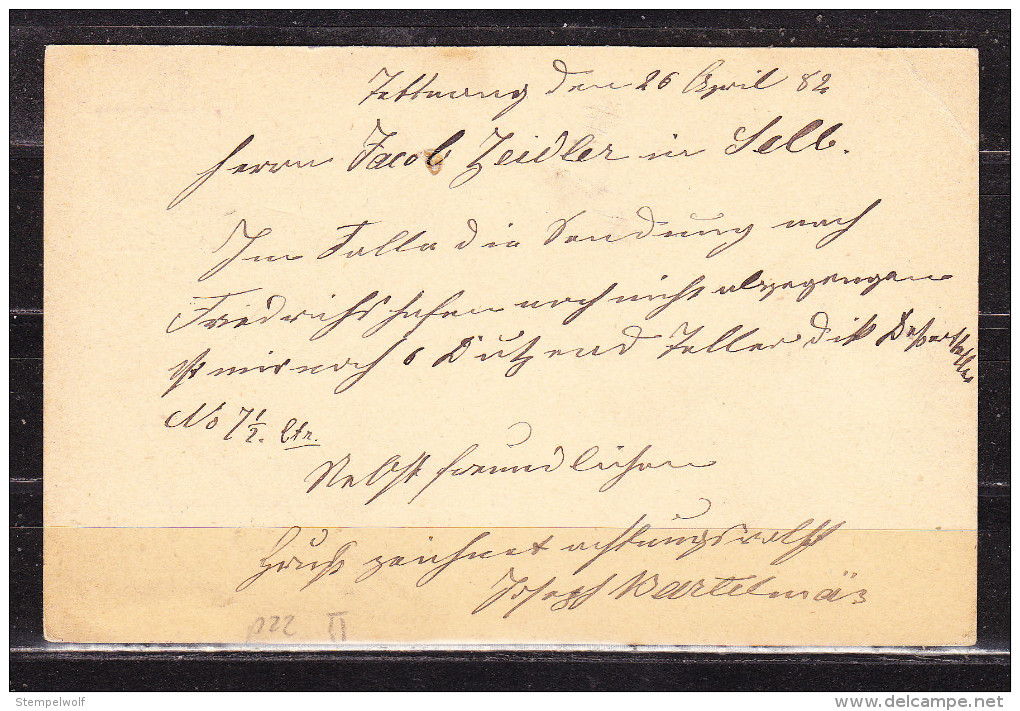 Tettnang den 26 April 82
Herrn Jacob Zeidler in Selb.
Im Falle die Sendung nach
Friedrichshafen noch nicht abgegangen
ist mir noch 6 Dutzend Teller dik
No 7 1/2. Ctr.
Nebst freundlichen
Gruß zeichnet achtungsvollst
Joseph Bartelmäs
p22 II
Stempelwolf
delcampe.net